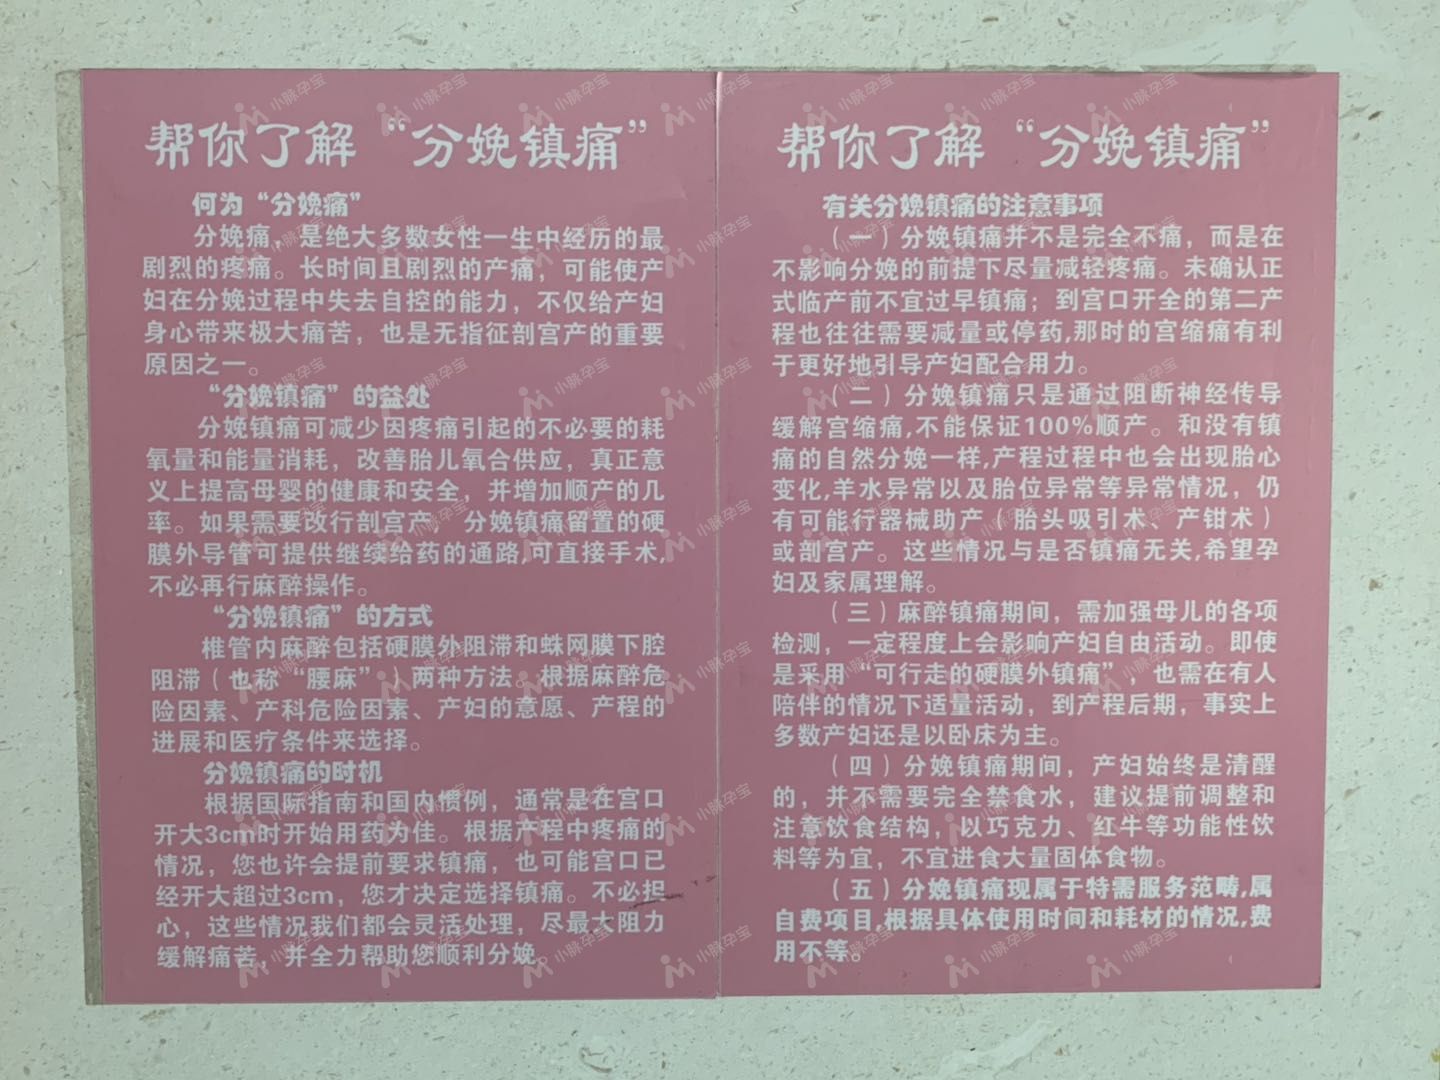 帮你了解“分娩镇痛”
何为“分娩痛”
分娩痛，是绝大多数女性一生中经历的最
剧烈的疼痛。长时间且剧烈的产痛，可能使产
妇在分娩过程中失去自控的能力，不仅给产妇
身心带来极大痛苦，也是无指征剖宫产的重要
原因之一。
“分娩镇痛”的益处
分娩镇痛可减少因疼痛引起的不必要的耗
氧量和能量消耗，改善胎儿氧合供应，真正意
义上提高母婴的健康和安全，并增加顺产的几
率。如果需要改行剖宫产，分娩镇痛留置的硬
膜外导管可提供继续给药的通路,可直接手术,
不必再行麻醉操作。
“分娩镇痛”的方式
椎管内麻醉包括硬膜外阻滞和蛛网膜下腔
阻滞（也称“腰麻”）两种方法。根据麻醉危
险因素、产科危险因素、产妇的意愿、产程的
进展和医疗条件来选择。
分娩镇痛的时机
根据国际指南和国内惯例，通常是在宫口
开大3cm时开始用药为佳。根据产程中疼痛的
情况，您也许会提前要求镇痛，也可能宫口已
经开大超过3cm，您才决定选择镇痛。不必担
心，这些情况我们都会灵活处理，尽最大阻力
缓解痛苦，并全力帮助您顺利分娩。
帮你了解“分娩镇痛”
有关分娩镇痛的注意事项
（一）分娩镇痛并不是完全不痛，而是在
不影响分娩的前提下尽量减轻疼痛。未确认正
式临产前不宜过早镇痛；到宫口开全的第二产
程也往往需要减量或停药,那时的宫缩痛有利
于更好地引导产妇配合用力。
（二）分娩镇痛只是通过阻断神经传导
缓解宫缩痛,不能保证100%顺产。和没有镇
痛的自然分娩一样,产程过程中也会出现胎心
变化,羊水异常以及胎位异常等异常情况，仍
有可能行器械助产（胎头吸引术、产钳术）
或剖宫产。这些情况与是否镇痛无关,希望孕
妇及家属理解。
（三）麻醉镇痛期间，需加强母儿的各项
检测，一定程度上会影响产妇自由活动。即使
是采用“可行走的硬膜外镇痛”，也需在有人
陪伴的情况下适量活动，到产程后期，事实上
多数产妇还是以卧床为主。
（四）分娩镇痛期间，产妇始终是清醒
的，并不需要完全禁食水，建议提前调整和
注意饮食结构，以巧克力、红牛等功能性饮
料等为宜，不宜进食大量固体食物。
（五）分娩镇痛现属于特需服务范畴,属
自费项目,根据具体使用时间和耗材的情况,费
用不等。
小脉孕宝